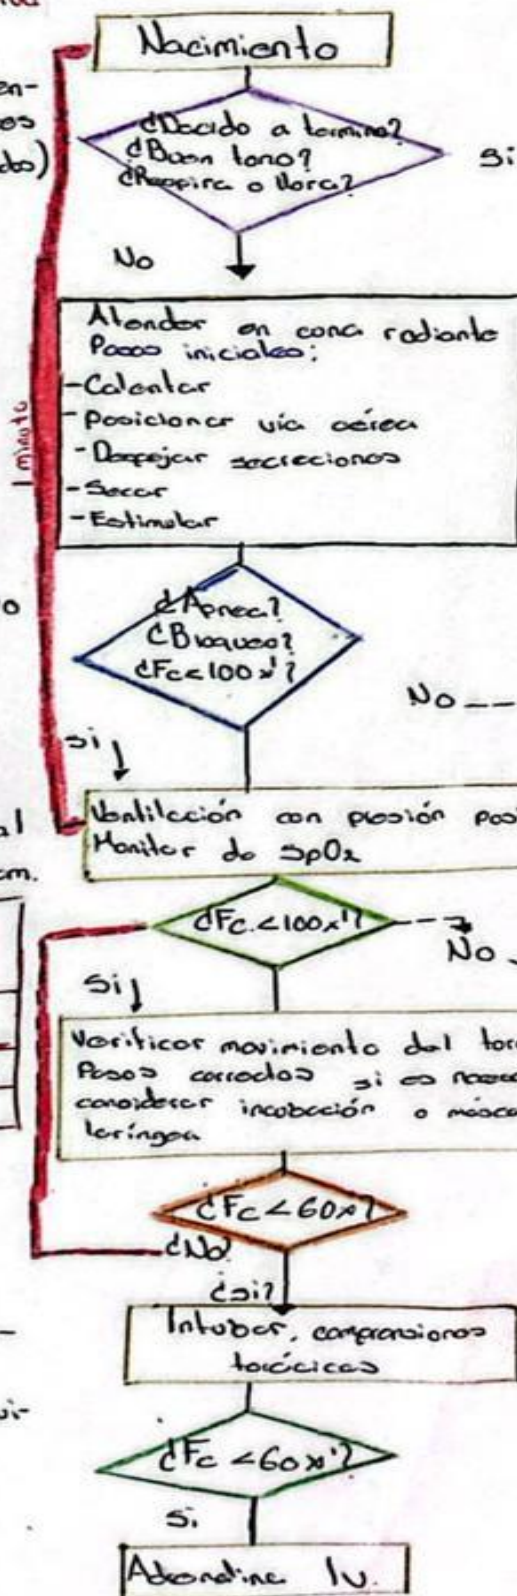 en-
os
do)
Nacimiento
¿Nacido a termino?
¿Buen tono?
¿Respira o llora?
Si
No
1 minuto
Atender en cuna radiante
Pasos iniciales:
-Calentar
-Posicionar vía aérea
-Despejar secreciones
-Secar
-Estimular
o
¿Apnea?
¿Bloqueo?
¿Fc<100x'?
No
si
al
cm.
Ventilación con presión posi
Monitor de SpO2
¿Fc.<100x'?
No
Si
Verificar movimiento del tor
Pasos correctos si es neces
considerar incubación o másca
laríngea
¿Fc<60x?
¿No?
¿si?
Intubar, compresiones
torácicas
¿Fc <60x'?
Si
Adrenalina Iv.